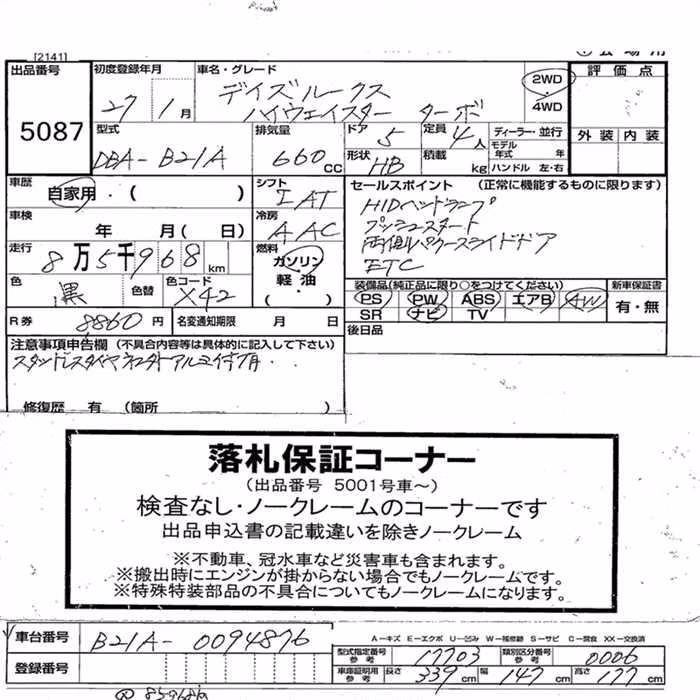 [2141]
出品番号
5087
初度登録年月
27 1月
車名・グレード
デイズルークス
ハイウェイスター ターボ
2WD
・
4WD
評価点
外装 内装
型式
DBA-B21A
排気量
660 CC
ドア 5
定員 4人
形状 HB
積載 kg
ディーラー・並行
モデル年式 年
ハンドル 左・右
車歴
自家用・( )
シフト
IAT
セールスポイント (正常に機能するものに限ります)
HIDヘッドランプ
プッシュスタート
両側パワースライドドア
ETC
車検
年 月( 日)
冷房
AAC
走行
8万5千968km
燃料
ガソリン
軽油
・( )
色
黒
色替
色コード
X42
装備品(純正品に限り○をつけてください)
新車保証書
PS PW ABS エアB AW
SR ナビ TV
有・無
R券 8860円
名変通知期限 月 日
後日品
注意事項申告欄 (不具合内容等は具体的に記入して下さい)
修復歴 有 (箇所 )
落札保証コーナー
(出品番号 5001号車~)
検査なし・ノークレームのコーナーです
出品申込書の記載違いを除きノークレーム
※不動車、冠水車など災害車も含まれます。
※搬出時にエンジンが掛からない場合でもノークレームです。
※特殊特装部品の不具合についてもノークレームになります。
車台番号 B21A-0094876
登録番号
A-キズ E-エクボ U-凹み W-補修跡 S-サビ C-腐食 XX-交換済
型式指定番号参考 17703
類別区分番号参考 0006
車庫証明用参考 長さ 339cm 幅 147cm 高さ 177cm